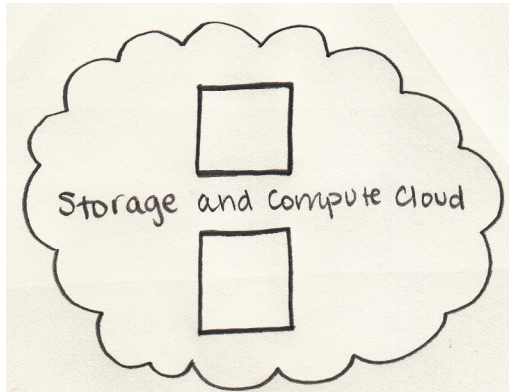 Storage and Compute Cloud